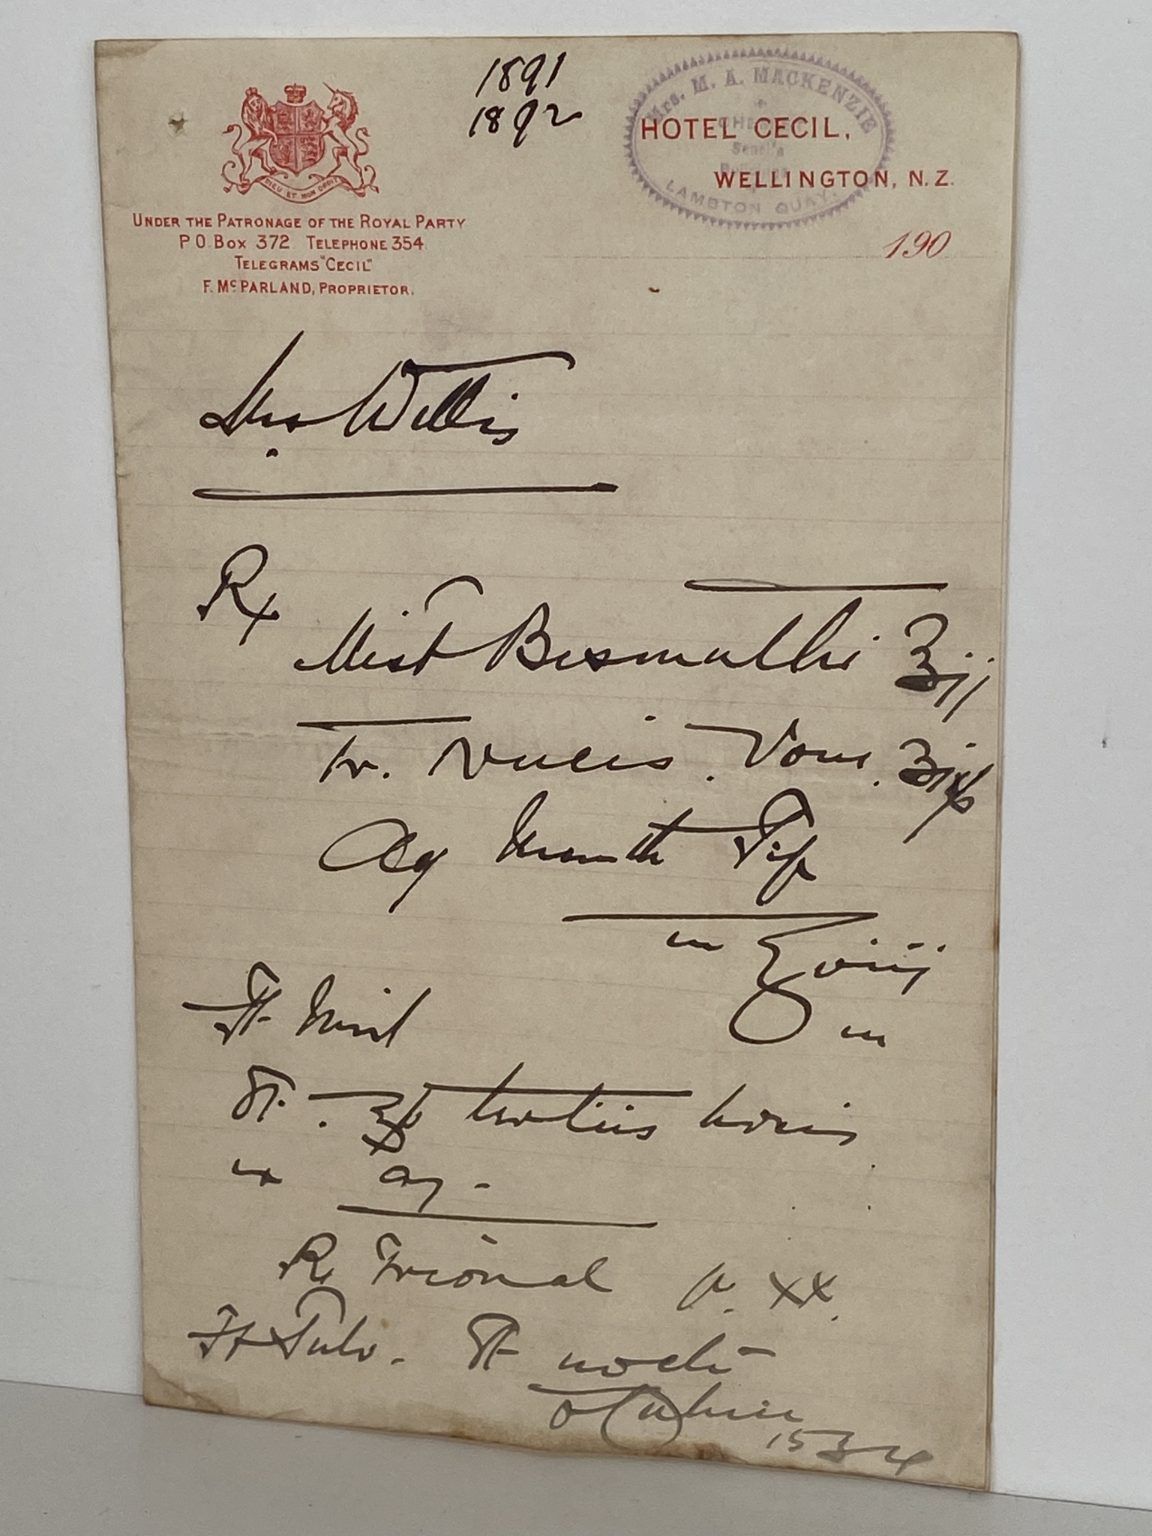 1891
1892
Mrs. M. A. MACKENZIE
LAMBTON QUAY.
DIEU ET MON DROIT
HOTEL CECIL,
WELLINGTON, N.Z.
190
UNDER THE PATRONAGE OF THE ROYAL PARTY
P.O. BOX 372 TELEPHONE 354
TELEGRAMS "CECIL"
F. McPARLAND, PROPRIETOR.
Mrs Willis
Rx
Mist Bismuthi ʒij
Tr. Nucis. Vom. ʒiss
Aq Menth Pip
ʒviij
Ft Mist
St. ʒss tertiis horis
ex aq.
R Trional gr. xx.
Ft Pulv. St nocte
1534